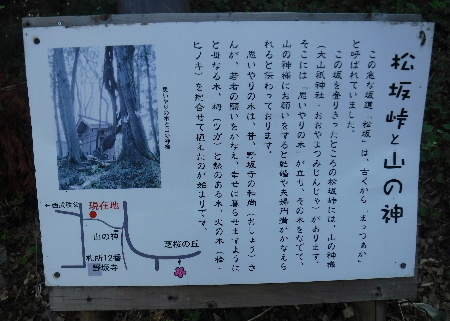 松坂峠と山の神
この急な坂道「松坂」は、古くから「まっつぁか」
と呼ばれていました。
この坂を登りきったところの松坂峠には、山の神様
(大山祇神社・おおやまつみじんじゃ)があります。
そこには「思いやりの木」が立ち、その木をなでて、
山の神様にお願いをすると結婚や夫婦円満がかなえら
れると伝わっております。
思いやりの木は、昔、野坂寺の和尚(おしょう)さ
んが、若者の願いをかなえ、幸せに暮らせますように
と母なる木、栂(ツガ)と熱のある木、火の木(桧・
ヒノキ)を抱合せて植えたのが始まりです。
思いやりの木と山の神様
←西武秩父
現在地
山の神
札所12番
野坂寺
芝桜の丘